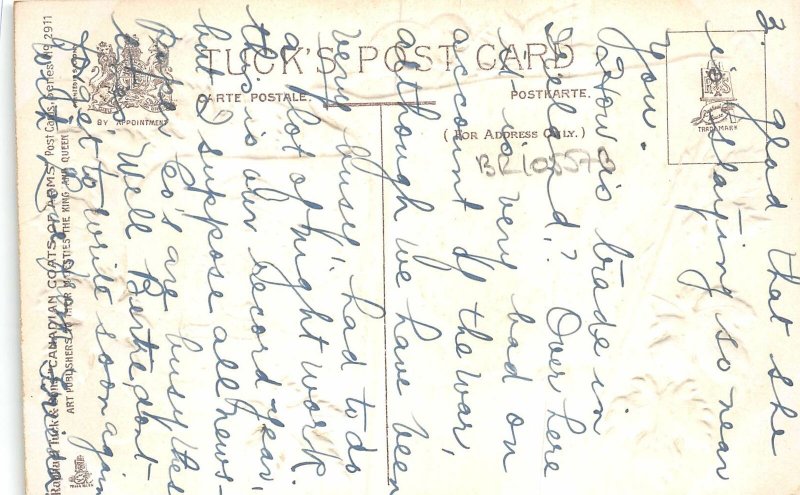 3. glad that she
is staying so near
you.
How is trade in
Ireland? Over here
it is very bad on
account of the war,
although we have been
very busy, had to do
a lot of night work.
this is our record year,
but I suppose all news-
paper Co's are busy these
Well Bertie dont
forget to write soon again
TUCK'S POST CARD
CARTE POSTALE.
POSTKARTE.
BY APPOINTMENT
(FOR ADDRESS ONLY.)
TRADE MARK
BR105570
Raphael Tuck & Sons "CANADIAN COATS OF ARMS" Post Cards, Series No. 2911
ART PUBLISHERS TO THEIR MAJESTIES THE KING AND QUEEN